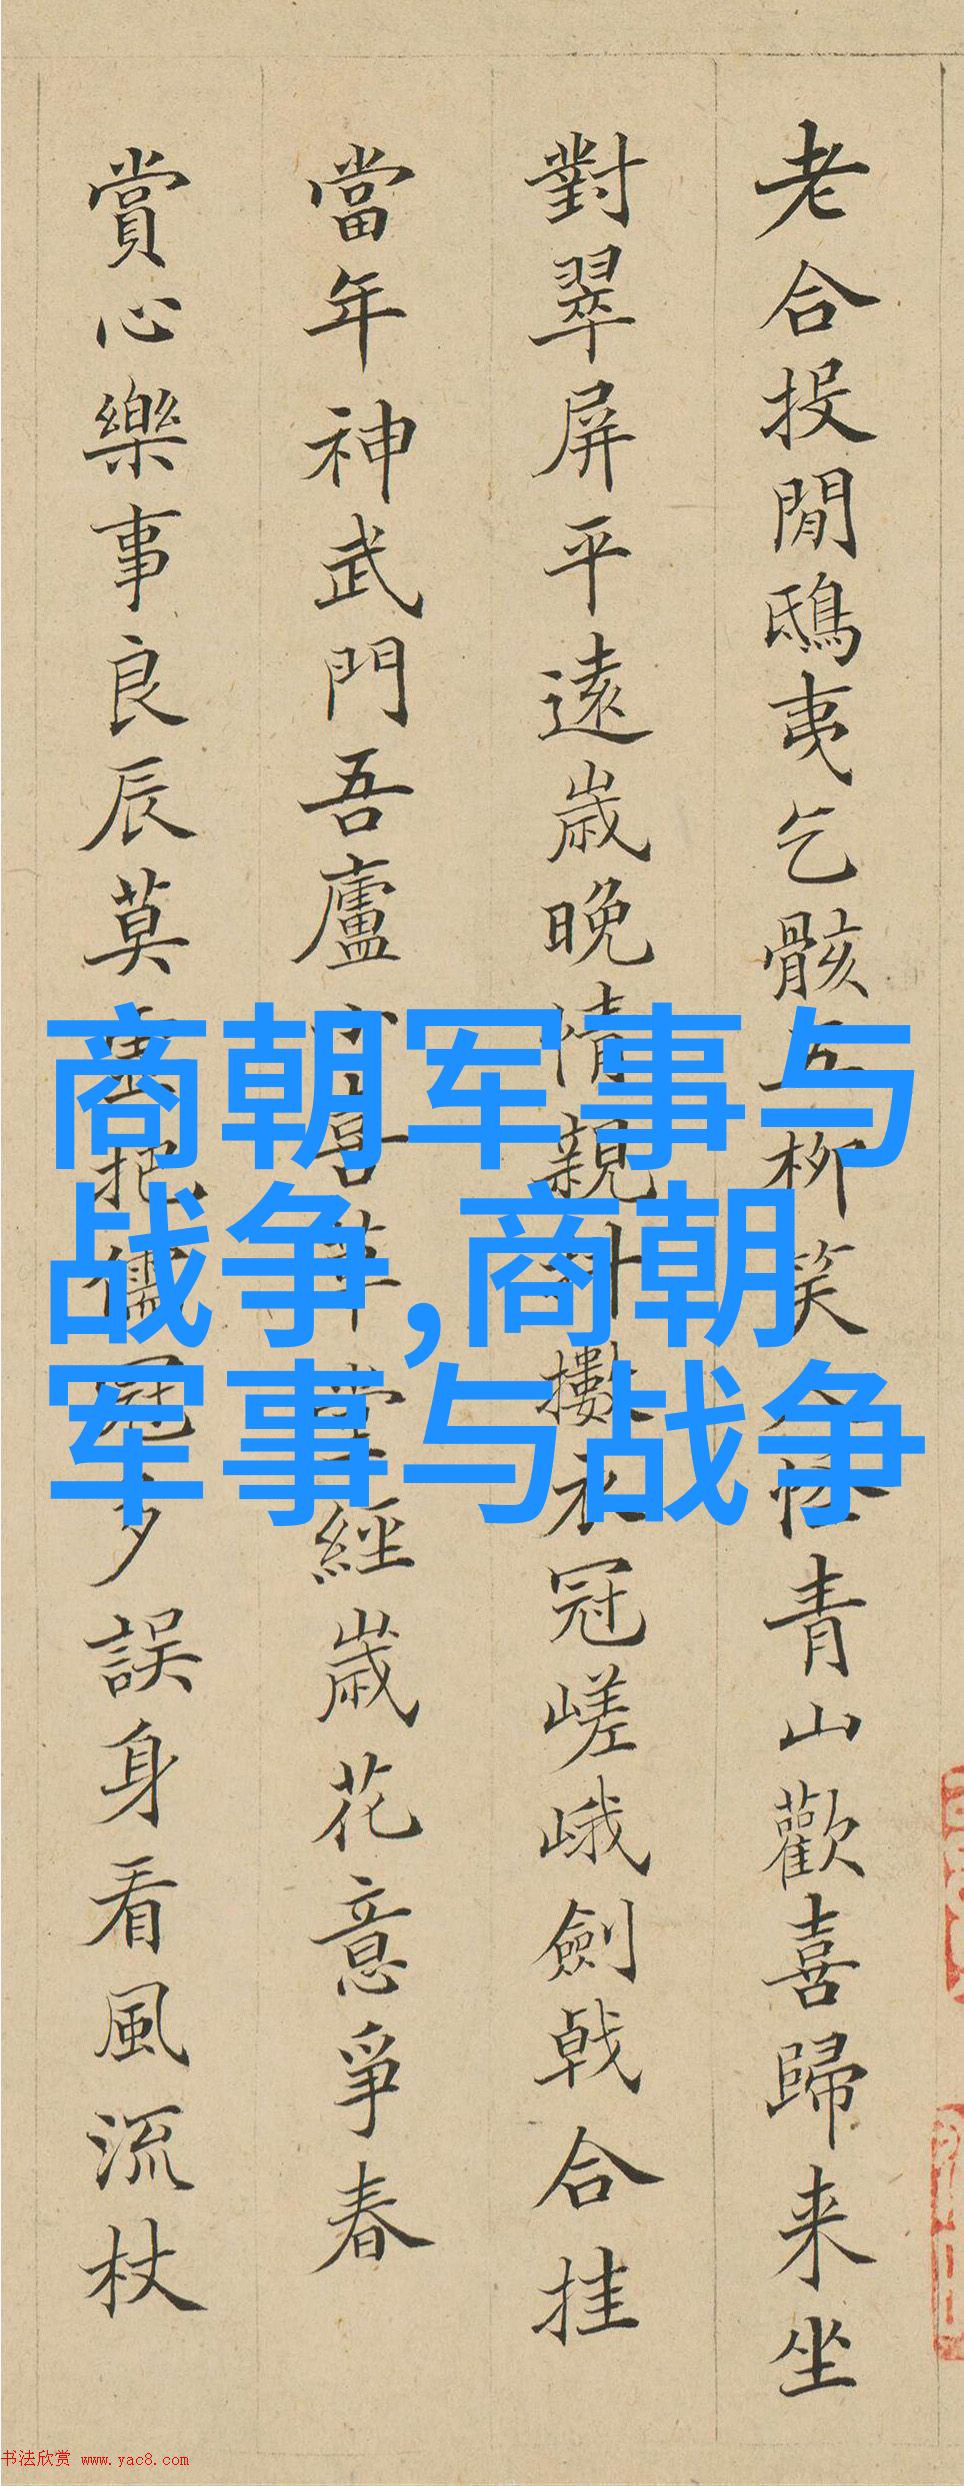 老合投閒鴟夷乞骸五柳笑人怪青山歡喜歸来坐
對翠屏平遠歲晚情親抖擻衣冠嵯峨劍戟合挂
當年神武門吾廬吾經歲花意爭春
賞心樂事良辰莫把儒冠多誤身看風流杖
商朝军事与
战争,商朝
军事与战争
书法欣赏 www.yac8.com